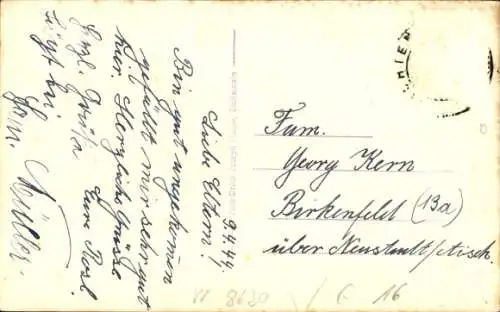 9.4.44.
Liebe Eltern!
Bin gut angekommen
gefällt mir sehr gut
hier. Herzliche Grüsse
Eure Rosl
Herzl. Grüße
fügt bei
Fam. Müller.
Fam.
Georg Kern
Birkenfeld (13a)
über Neustadt/Aisch.
8620
16